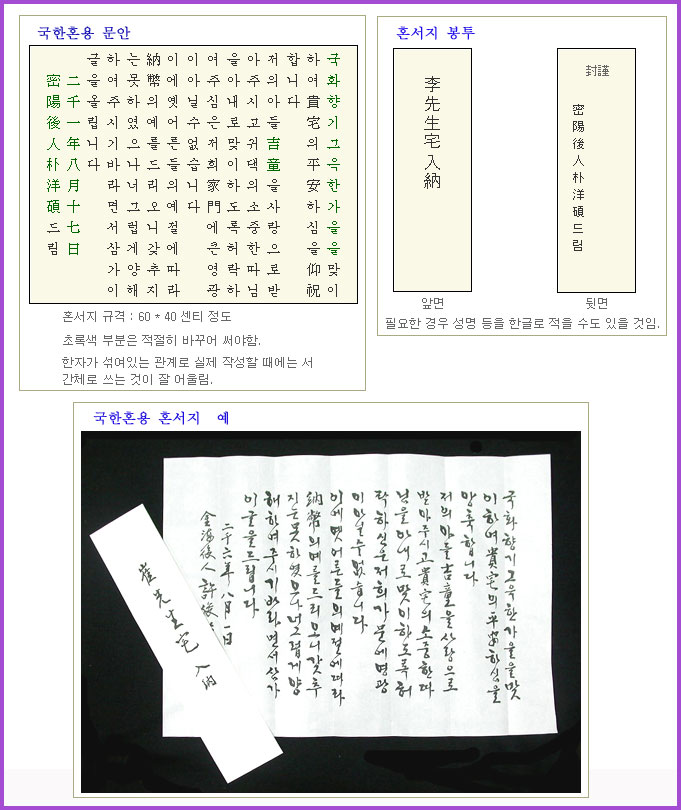 국한혼용 문안
국화향기그윽한가을을맞이
하여貴宅의平安하심을仰祝
합니다
저의아들吉童을사랑으로받
아주시고귀댁의소중한따님
을아내로맞이하도록허락하
여주심은저희家門에큰영광
이아닐수없습니다
이에옛어른들의예절에따라
納幣의예를드리오니갖추지
는못하였으나너그럽게양해
하여주시기바라면서삼가이
글을올립니다
二千一年八月十七日
密陽後人朴洋碩드림
혼서지 규격 : 60 * 40 센티 정도
초록색 부분은 적절히 바꾸어 써야함.
한자가 섞여있는 관계로 실제 작성할 때에는 서
간체로 쓰는 것이 잘 어울림.
혼서지 봉투
李先生宅入納
앞면
封謹
密陽後人朴洋碩드림
뒷면
필요한 경우 성명 등을 한글로 적을 수도 있을 것임.
국한혼용 혼서지 예
국화향기그윽한가을을맞
이하여貴宅의平安하심을
앙축합니다
저의아들吉童을사랑으로
받아주시고貴宅의소중한따
님을아내로맞이하도록허
락하심은저희가문에영광
이아닐수없습니다
이에옛어른들의예절에따라
納幣의예를드리오니갖추
지는못하였으나너그럽게양
해하여주시기바라면서삼가
이글을드립니다
二千六年八月一日
金海後人許
崔先生宅 入納